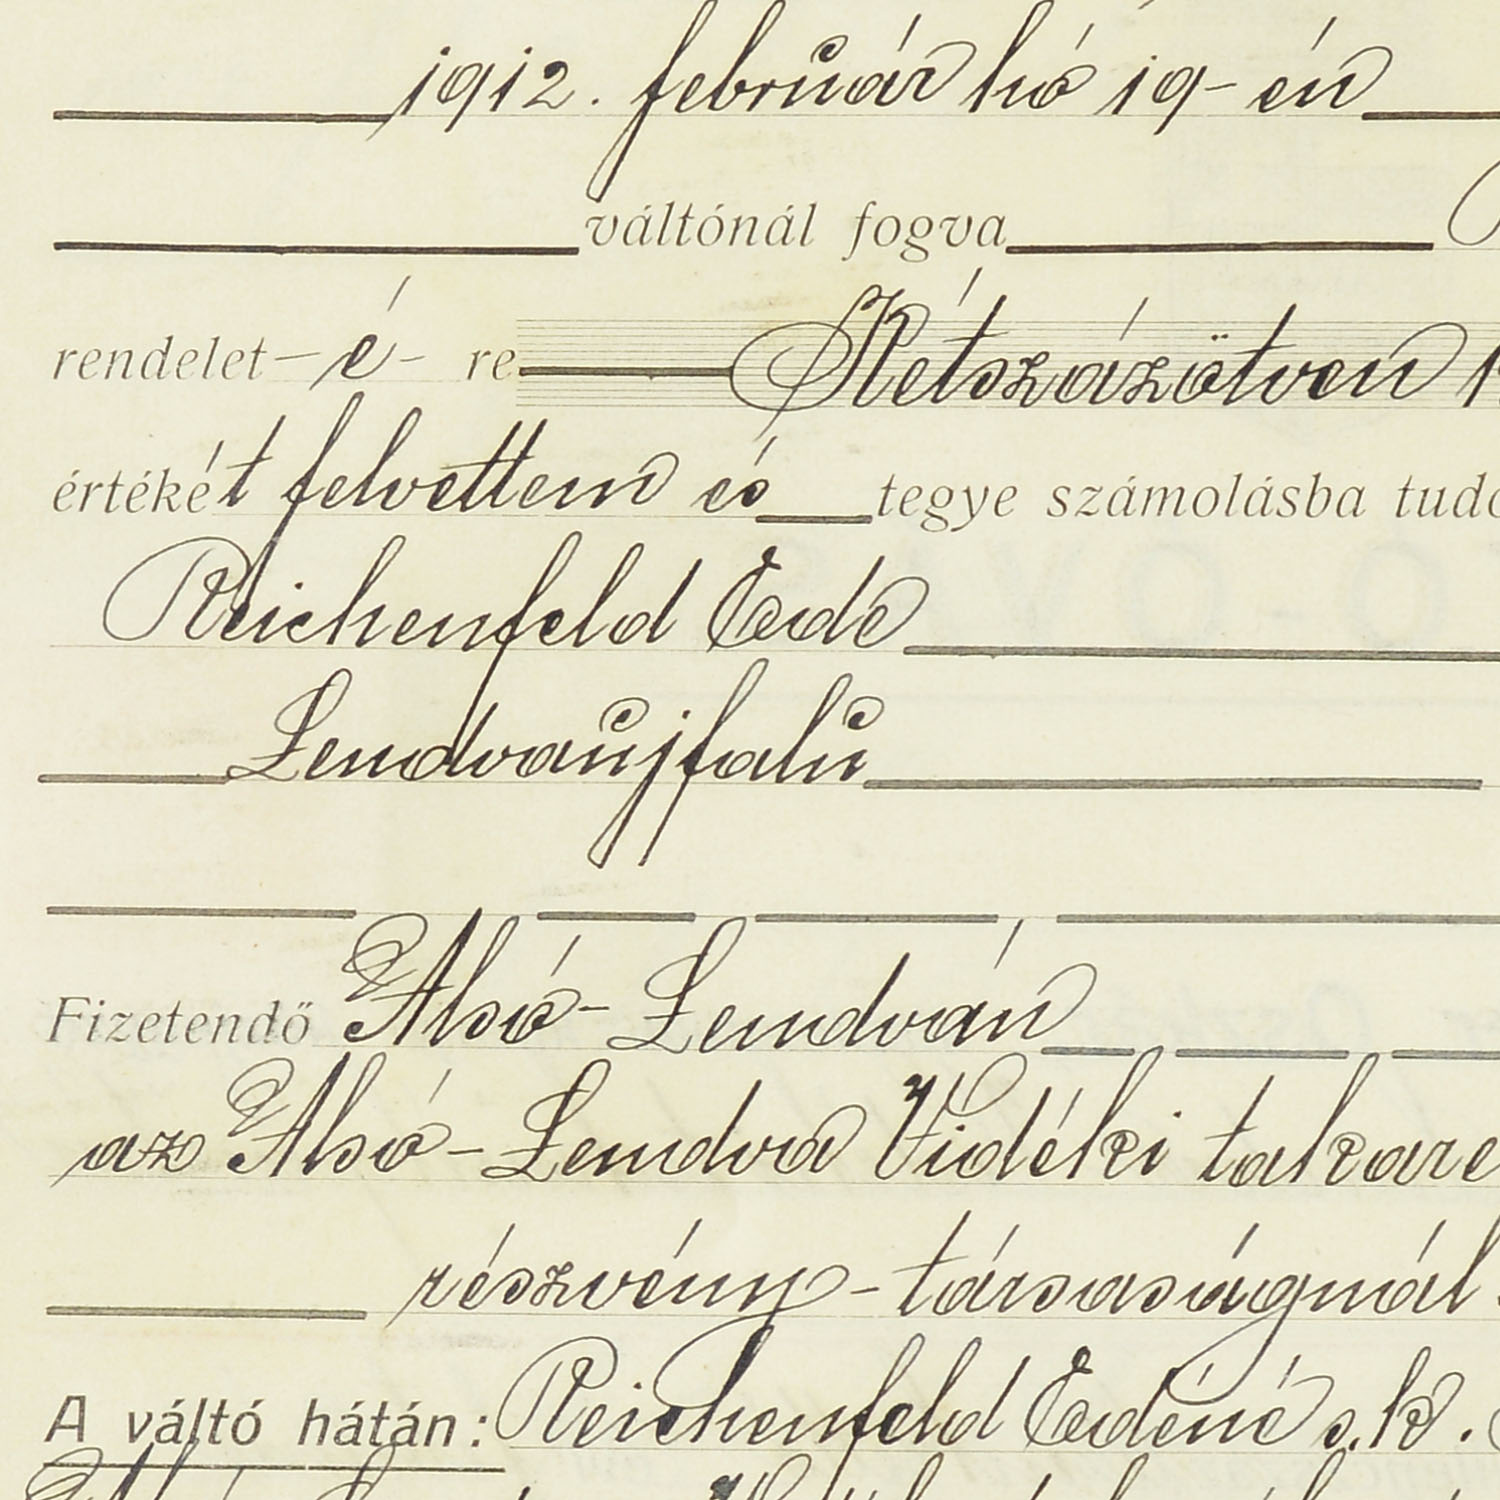 1912. február hó 19-én
váltónál fogva
rendelet-é-re Kétszázötven
értékét felvettem és tegye számolásba
Reichenfeld Ede
Lendvaújfalú
Fizetendő Alsó-Lendván
az Alsó-Lendva Vidéki takare
részvény-társaságnál
A váltó hátán: Reichenfeld Edéné s.k.